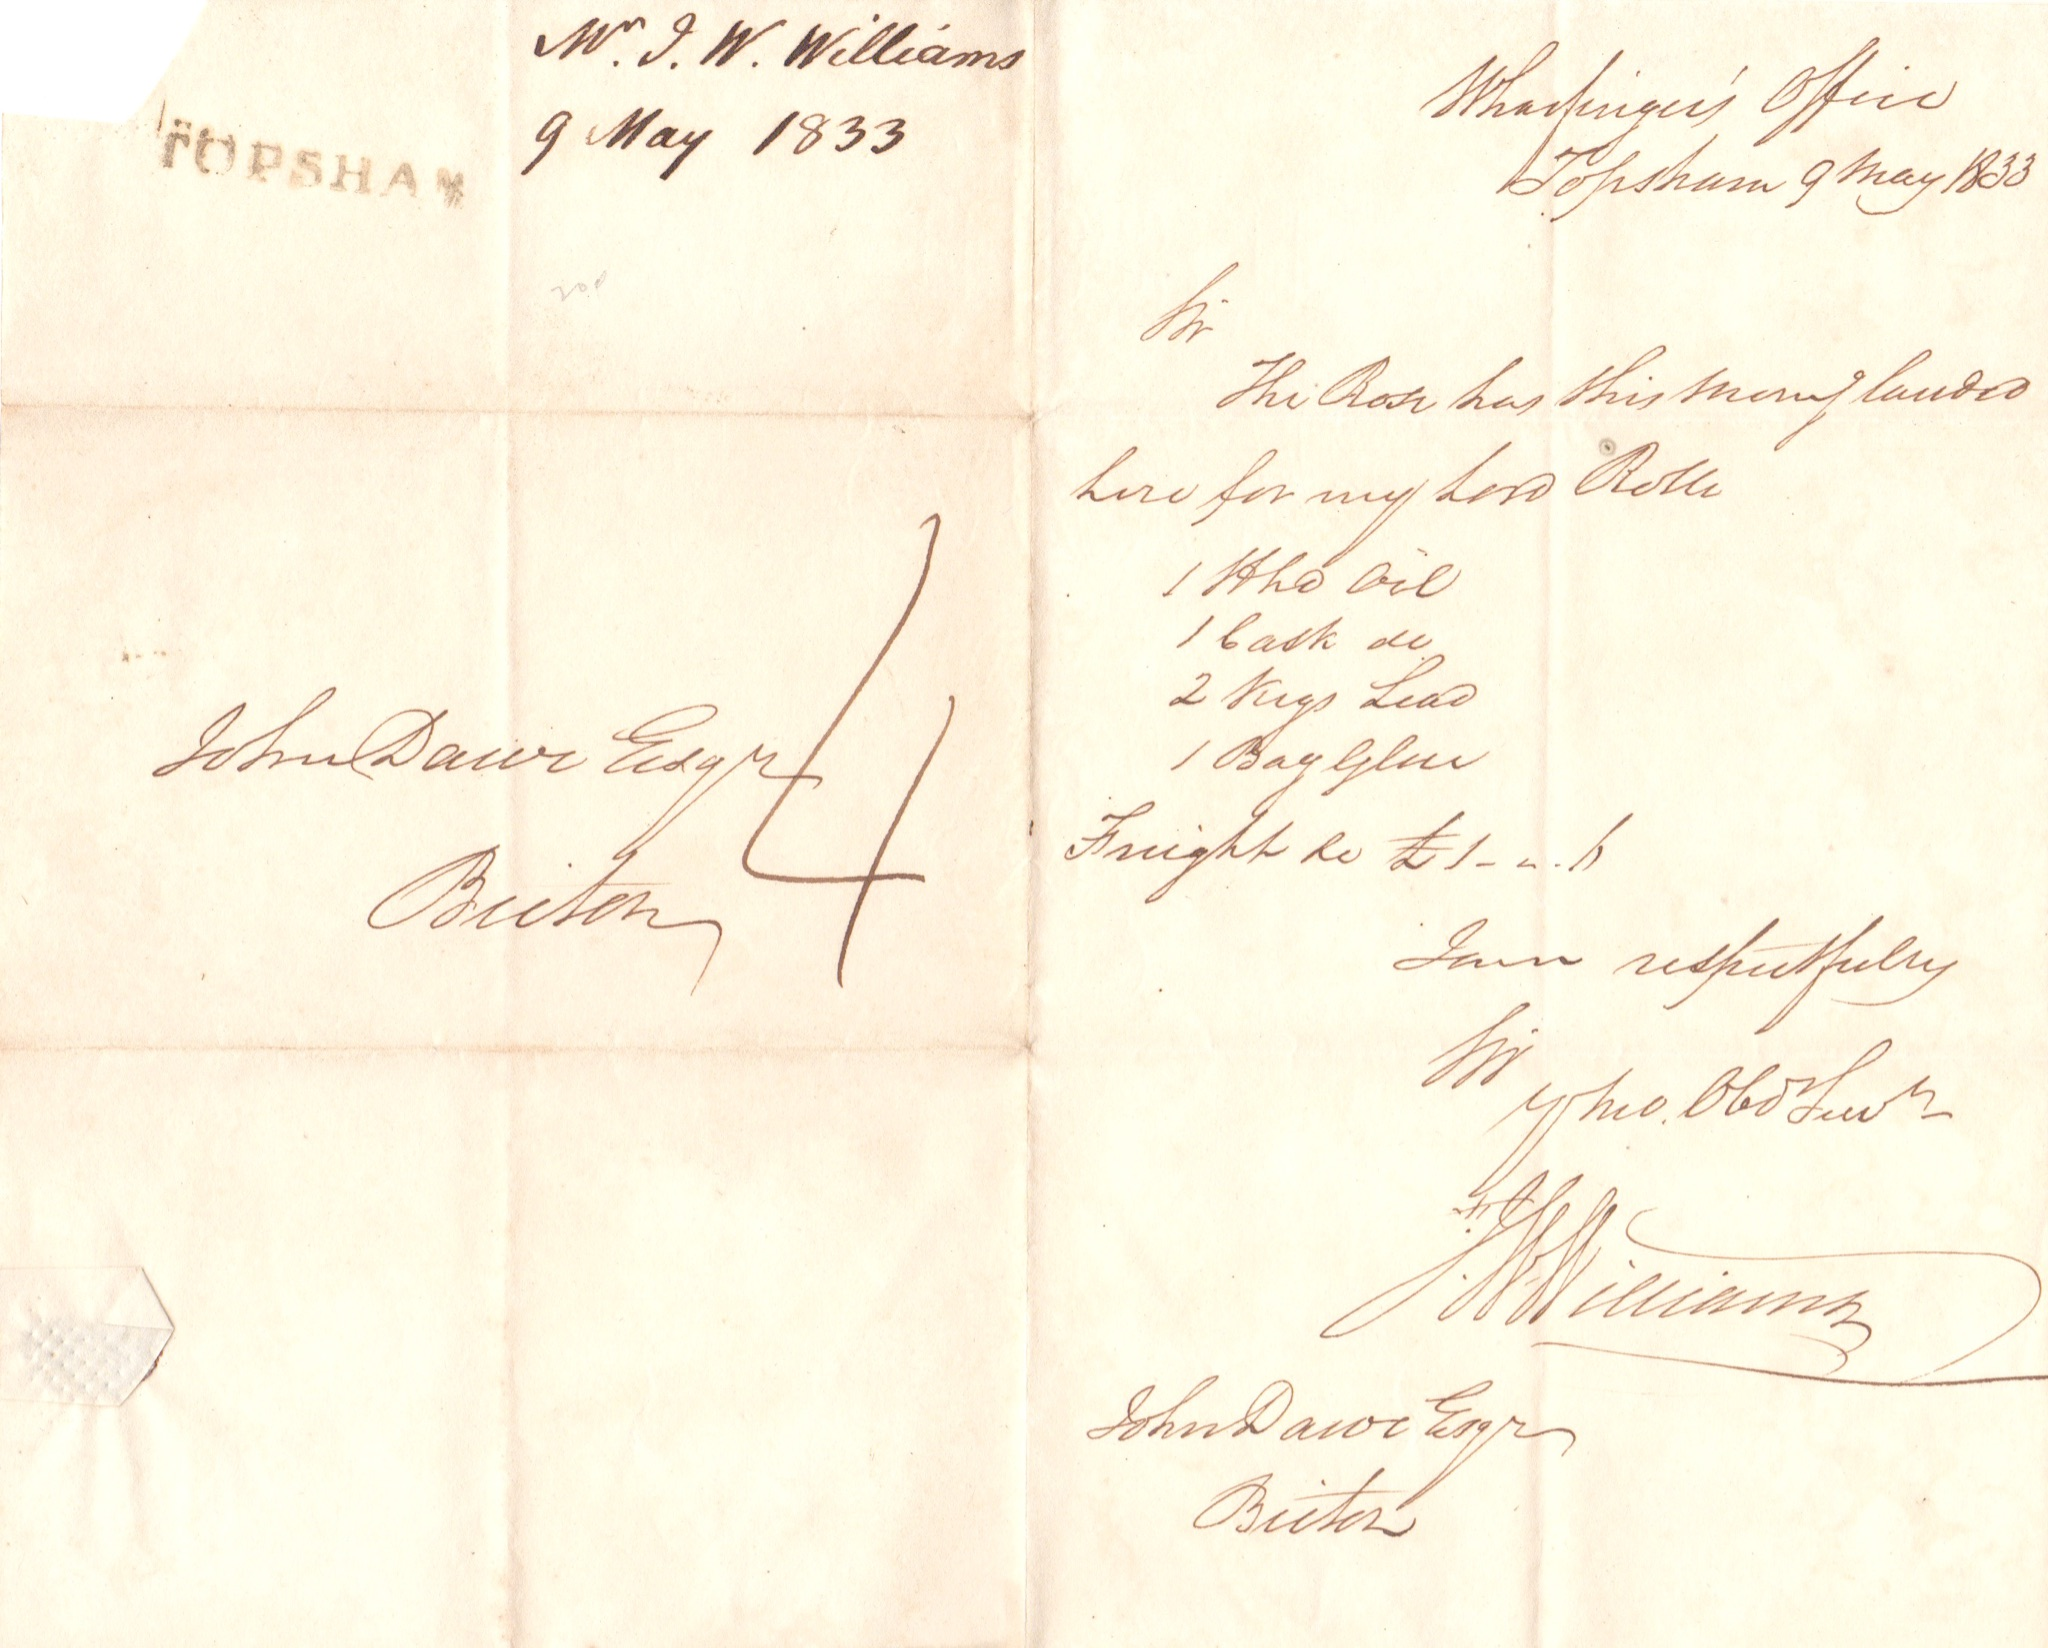 Mr. J. W. Williams
9 May 1833
TOPSHAM
John Dawe Esqr
Bicton
4
Wharfinger's Office
Topsham 9 May 1833
Sir
The Rose has this morng landed
here for my Lord Rolle
1 Hhd Oil
1 Cask do
2 Kegs Lead
1 Bag Glue
Freight do £1-"-6
I am respectfully
Sir
Obd Servt
J. W. Williams
John Dawe Esqr
Bicton